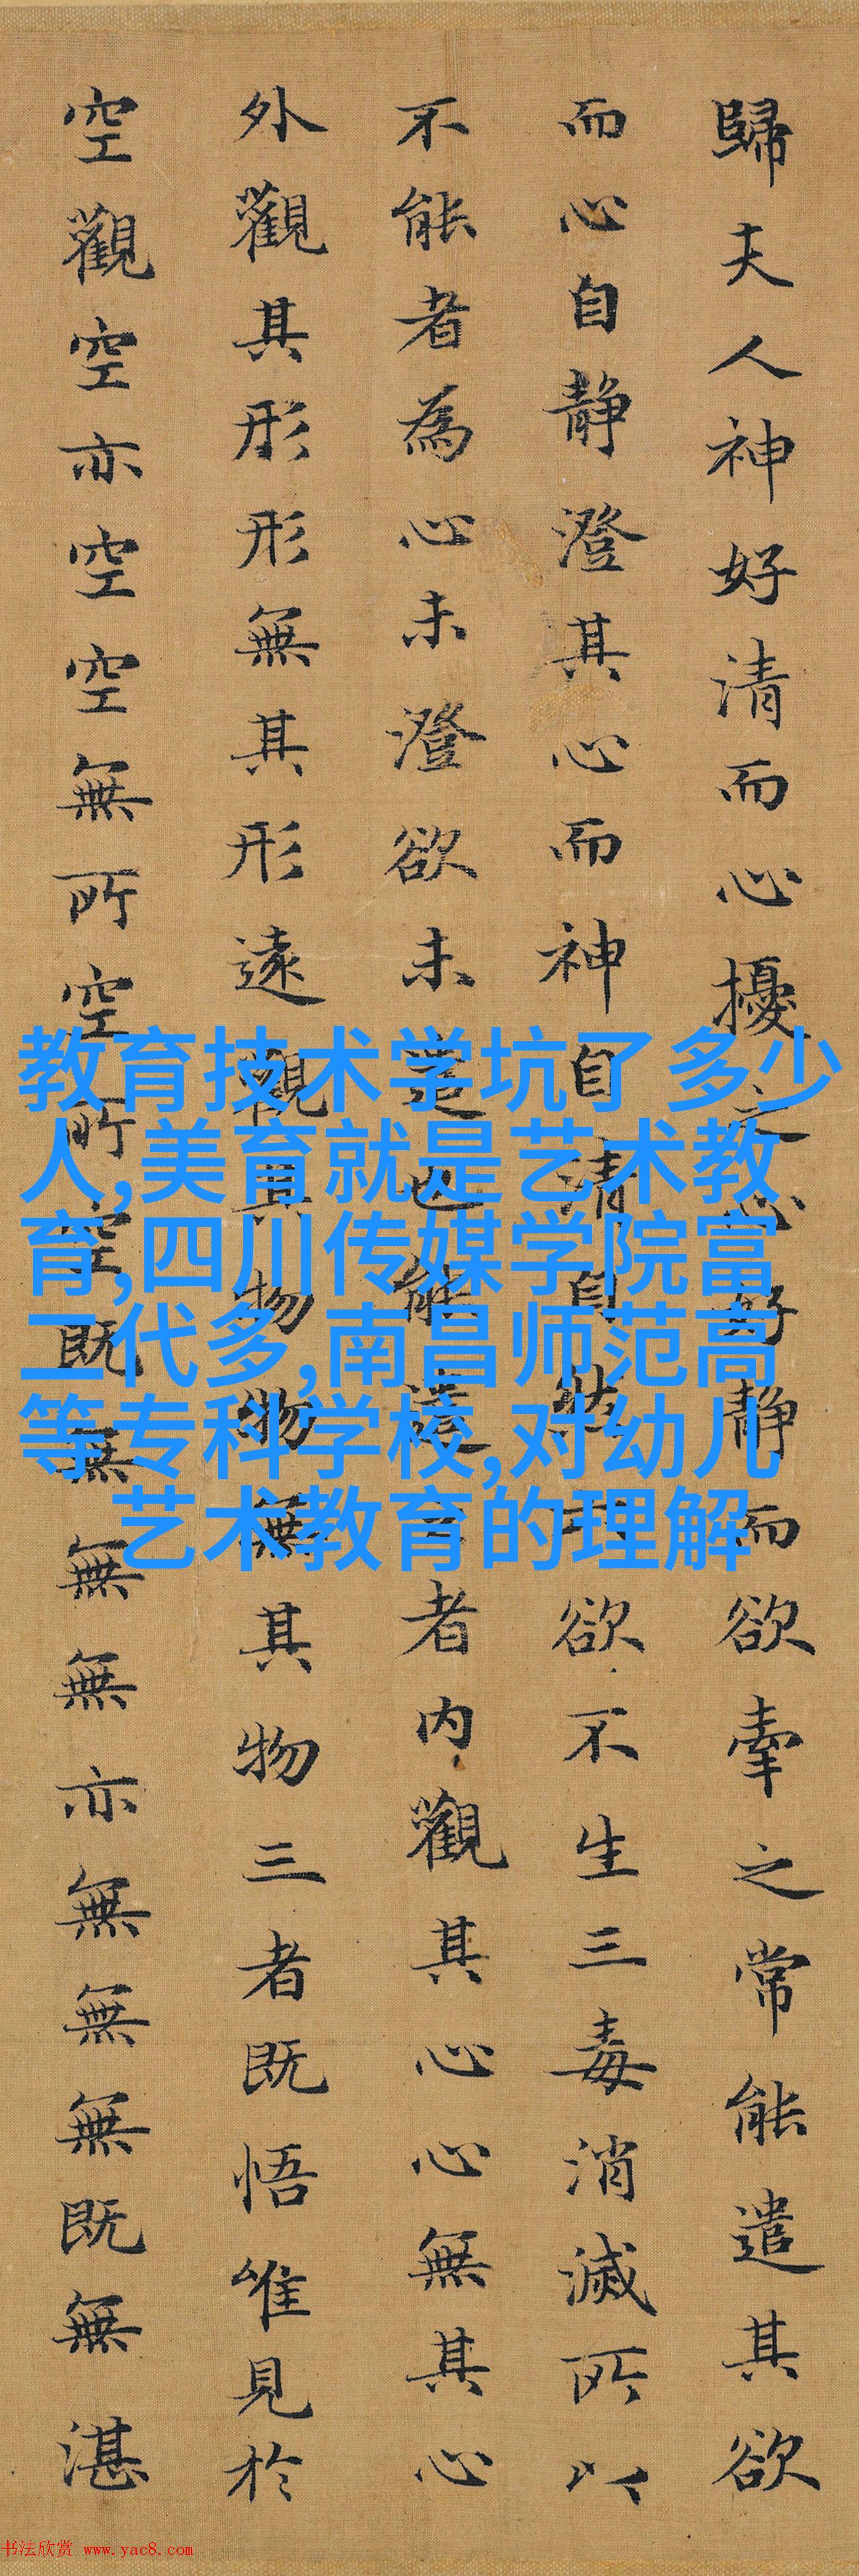 歸夫人神好清而心擾之心好静而欲牽之常能遣其欲
而心自静澄其心而神自清自然六欲不生三毒消滅所以
不能者為心未澄欲未遣也能遣之者内觀其心心無其心
外觀其形形無其形遠觀其物物無其物三者既悟唯見於
空觀空亦空空無所空所空既無無無亦無無無既無湛
教育技术学坑了多少
人,美育就是艺术教
育,四川传媒学院富
二代多,南昌师范高
等专科学校,对幼儿
艺术教育的理解
书法欣赏 www.yac8.com